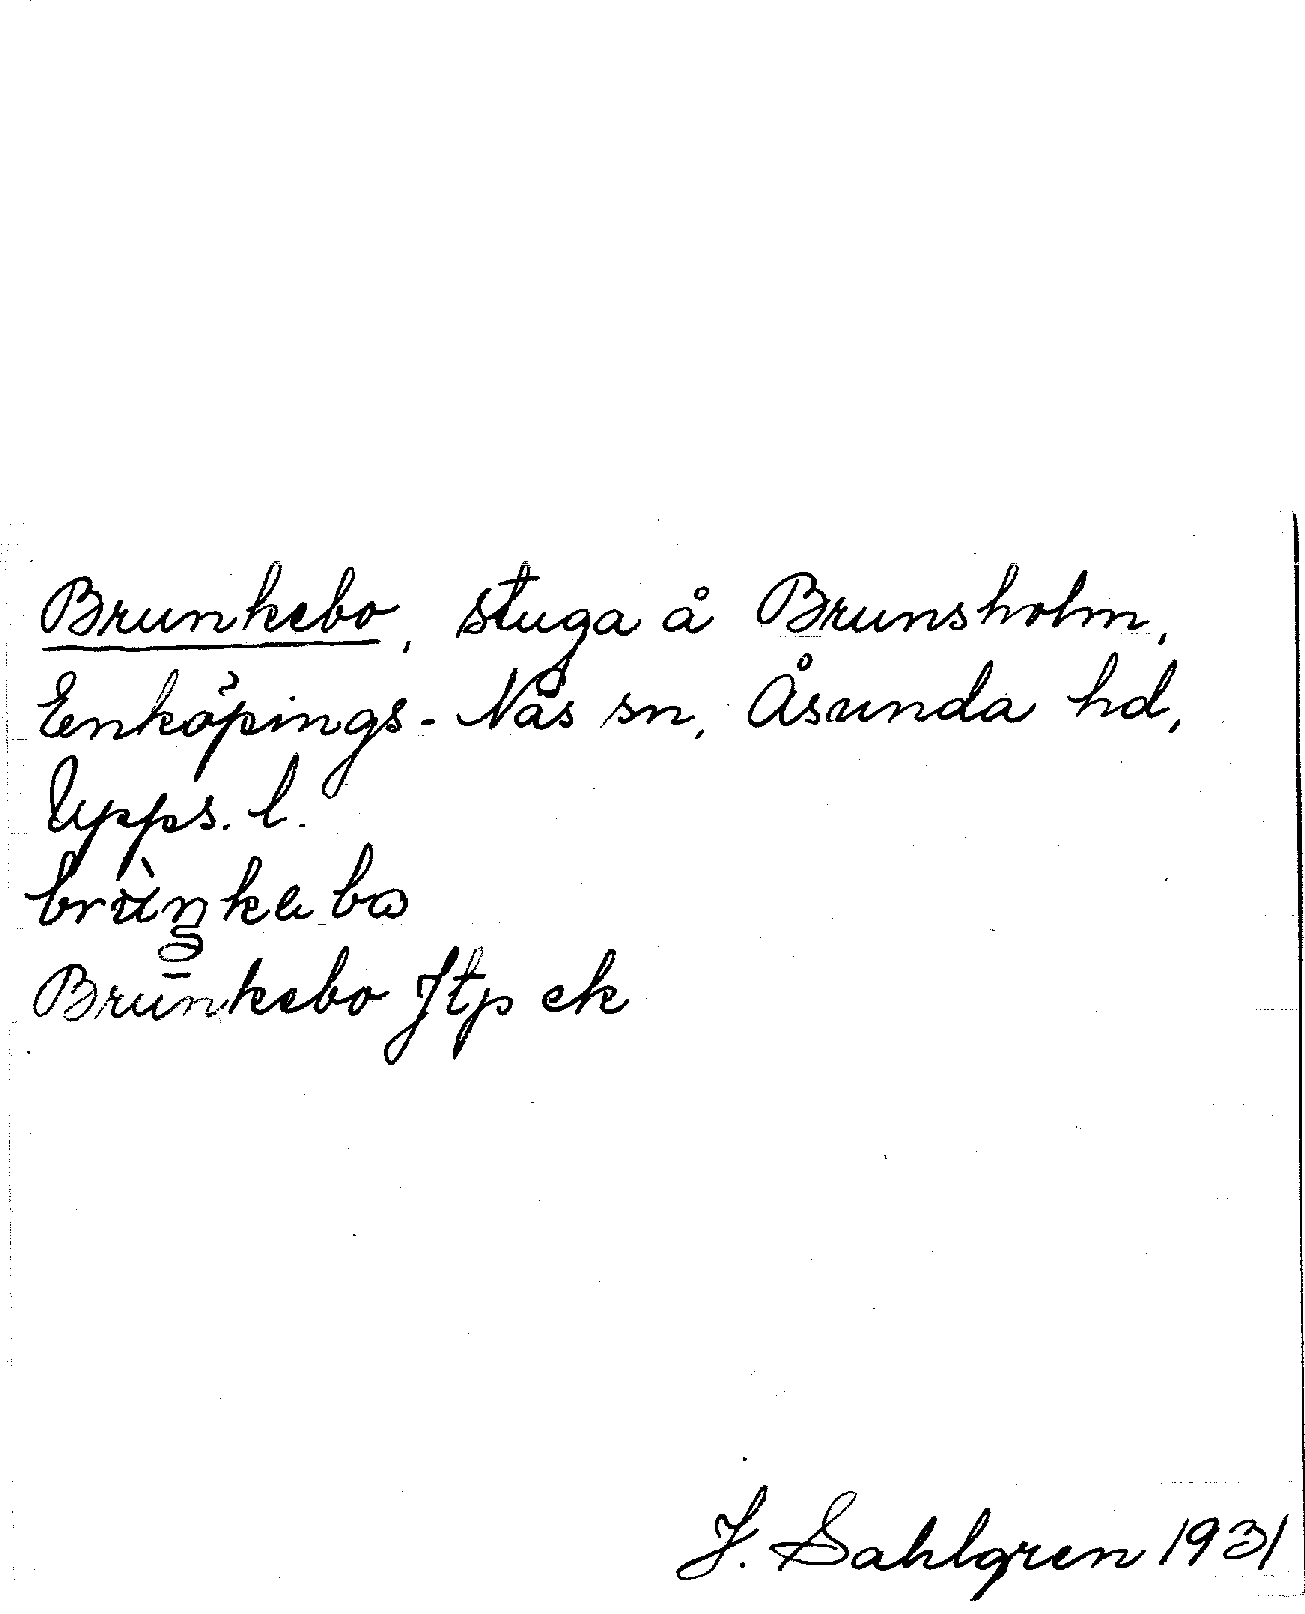 Brunkebo, stuga å Brunsholm,
Enköpings-Näs sn, Åsunda hd,
Upps. l.
Brunkebo Jtp ek
J. Sahlgren 1931